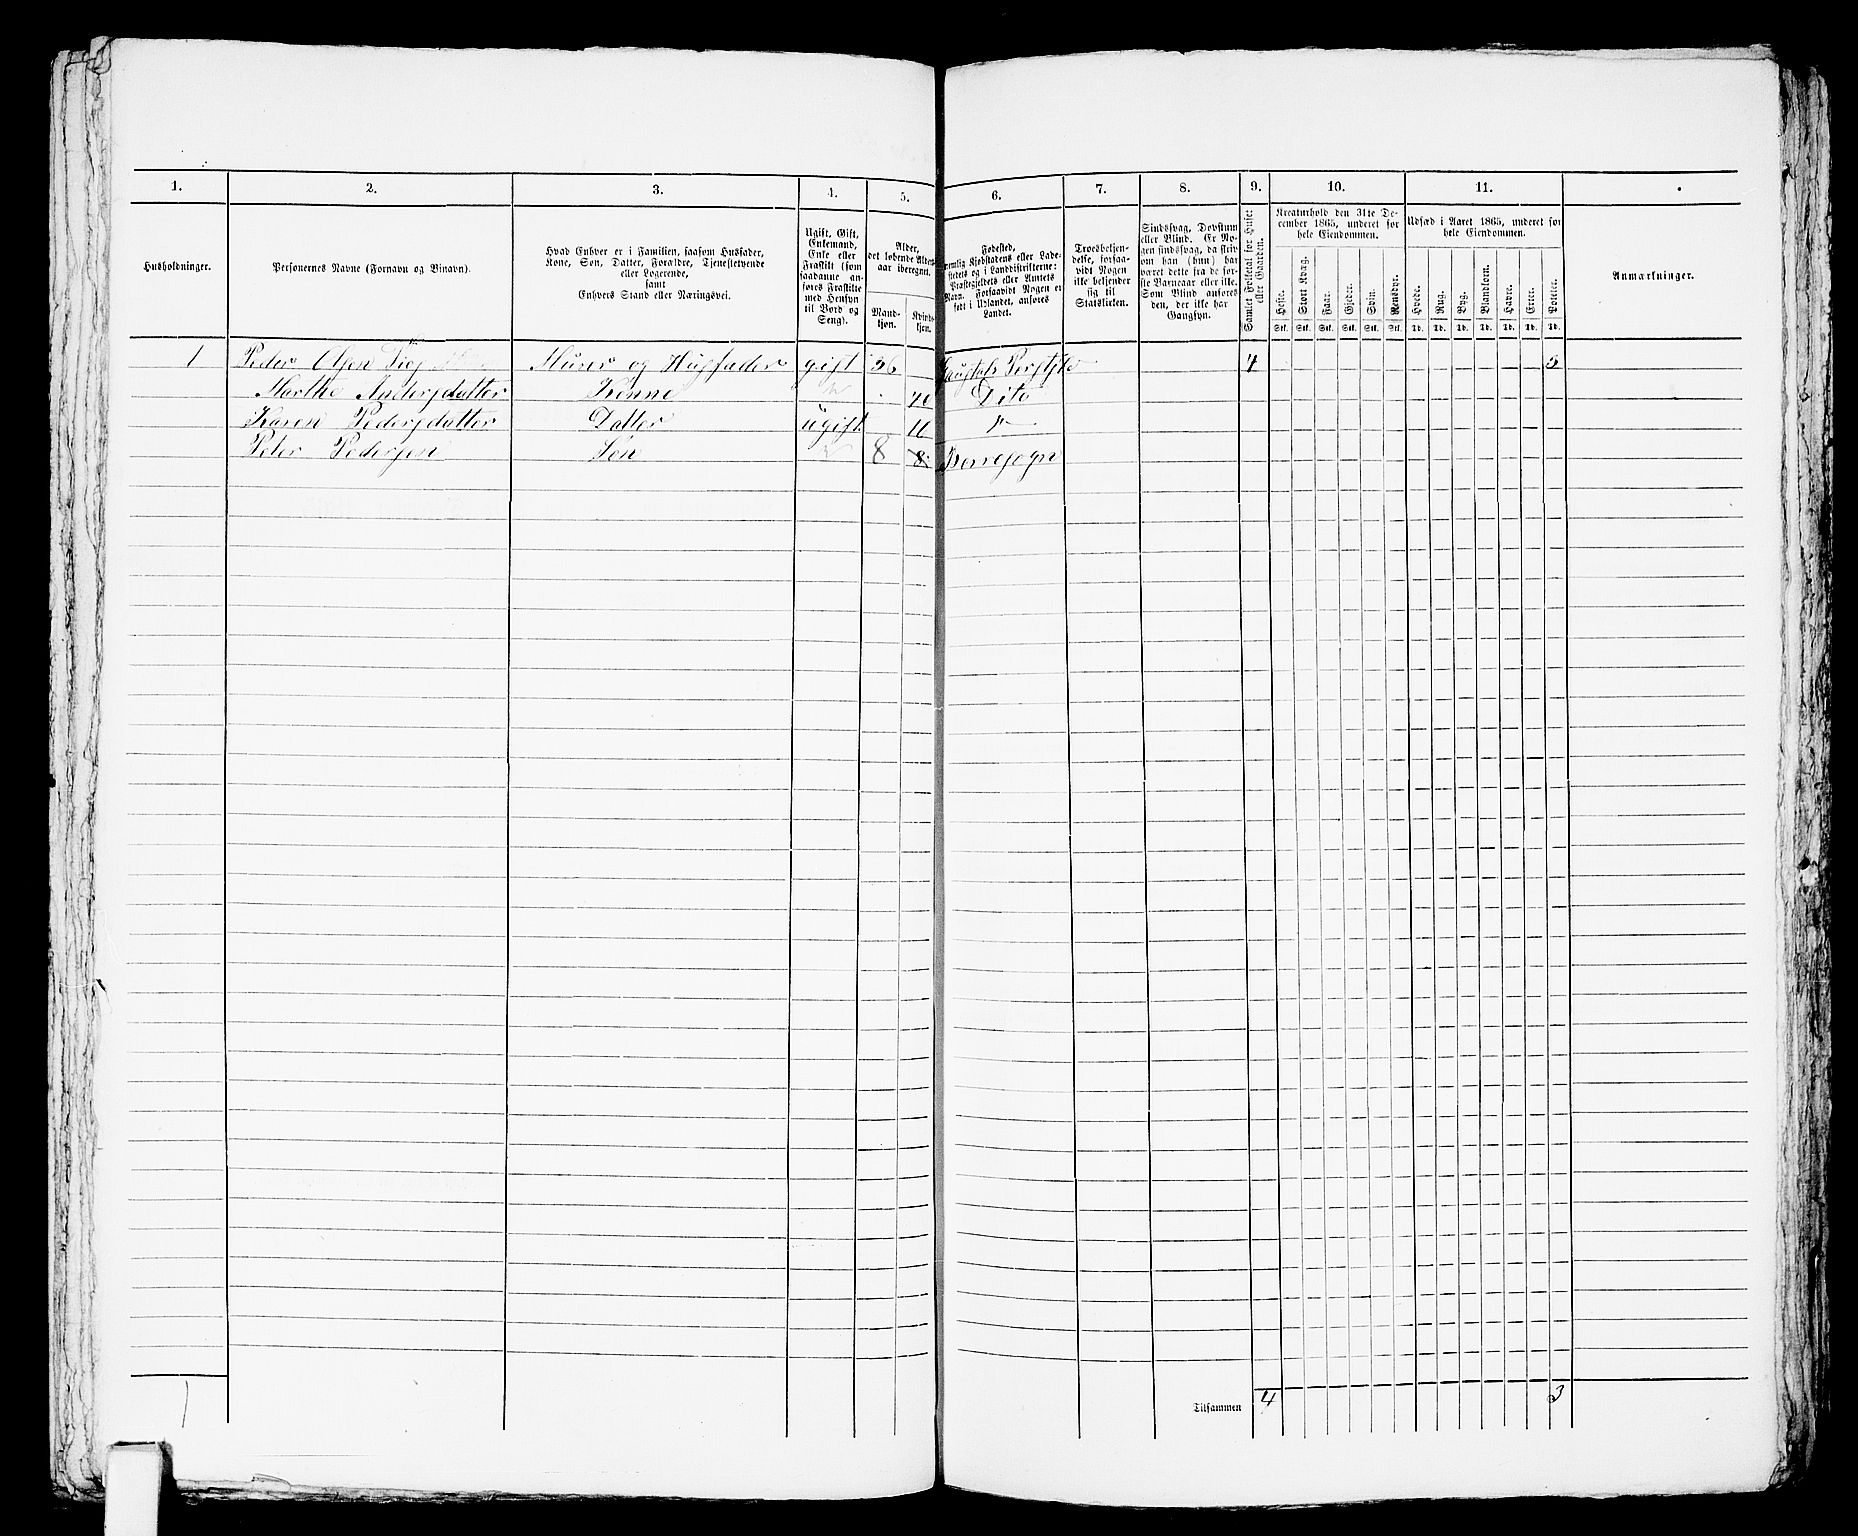 1. 2. 3. 4. 5. 6. 7. 8. 9. 10. 11.
Husholdninger.
Personernes Navne (Fornavn og Binavn).
Hvad Enhver er i Familien, saasom Husfader,
Kone, Søn, Datter, Forældre, Tjenestetyende
eller Logerende,
samt
Enhvers Stand eller Næringsvei.
Ugift, Gift,
Enkemand,
Enke eller
Fraskilt (som
saadanne an-
føres Fraskilte
med Hensyn
til Bord og
Seng).
Alder,
det løbende Alders-
aar iberegnet.
Mand-
kjøn.
Kvind-
kjøn.
Fødested,
nemlig Kjøbstadens eller Lade-
stedets og i Landdistrikterne:
Præstegjeldets eller Amtets
Navn. Forsaavidt Nogen er
født i Udlandet, anføres
Landet.
Troesbekjen-
delse, forsaa-
vidt Nogen
ikke bekjender
sig til
Statskirken.
Sindssvag, Døvstum
eller Blind. Er No-
gen sindssvag, da skriv
om han (hun) har
været dette fra de før-
ste Barneaar eller ikke.
Som Blind anføres
den, der ikke har
Gangsyn.
Samlet Folketal for Huset
eller Gaarden.
Kreaturhold den 31te De-
cember 1865, underet for
hele Eiendommen.
Heste. Stort Kvæg. Faar. Gjeder. Svin. Rensdyr.
Stk. Stk. Stk. Stk. Stk. Stk.
Udsæd i Aaret 1865, underet for
hele Eiendommen.
Hvede. Rug. Byg. Blandkorn. Havre. Erter. Poteter.
Td. Td. Td. Td. Td. Td. Td.
Anmærkninger.
1 Peder Olsen Murer og Husfader gift 36 4
Marthe Andersdatter Konne 40 Dito
Karen Pedersdatter Datter ugift
Peter Pedersen Søn 8 8 Borresogn
1 Tilsammen 4 3